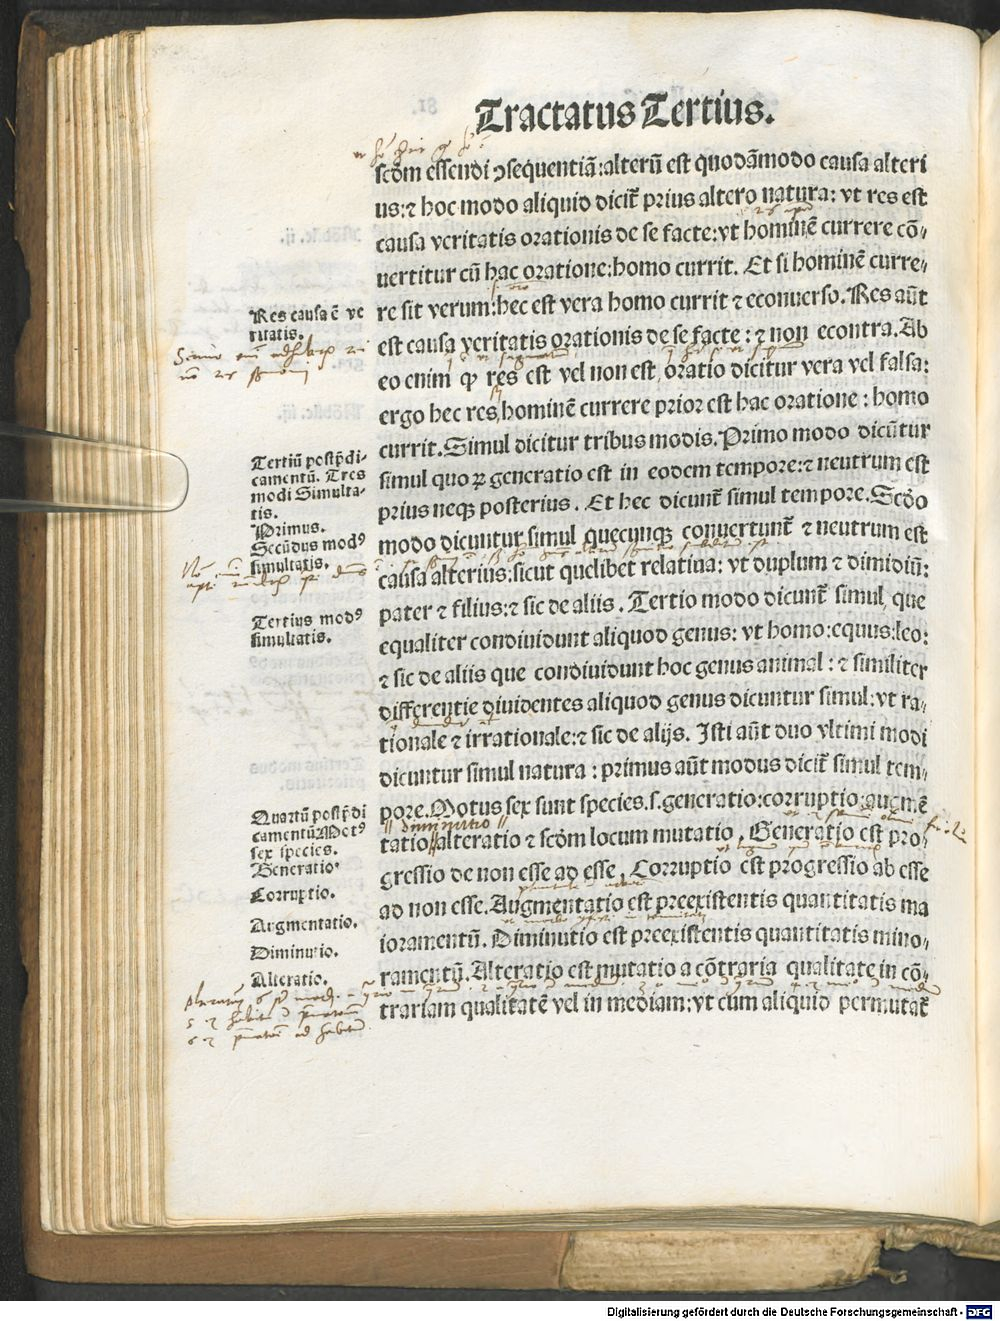 Tractatus Tertius.
scd̄m essendi ꝯsequentiā:alterū est quodāmodo causa alteri
us:⁊ hoc modo aliquid dicit᷑ prius altero natura: vt res est
causa veritatis orationis de se facte:vt hominē currere cō-
uertitur cū hac oratione:homo currit. Et si hominē curre-
re sit verum:hec est vera homo currit ⁊ econuerso. Res aūt
est causa veritatis orationis de se facte: ⁊ non econtra. Ab
eo enim ꝙ res est vel non est, oratio dicitur vera vel falsa:
ergo hec res, hominē currere prior est hac oratione: homo
currit. Simul dicitur tribus modis. Primo modo dicūtur
simul quoꝝ generatio est in eodem tempore:⁊ neutrum est
prius neqꝫ posterius. Et hec dicunt᷑ simul tempore. Scd̄o
modo dicuntur simul quecunqꝫ conuertunt᷑ ⁊ neutrum est
causa alterius:sicut quelibet relatiua: vt duplum ⁊ dimidiū:
pater ⁊ filius:⁊ sic de aliis. Tertio modo dicunt᷑ simul, que
equaliter condiuidunt aliquod genus: vt homo:equus:leo:
⁊ sic de aliis que condiuidunt hoc genus animal: ⁊ similiter
differentie diuidentes aliquod genus dicuntur simul: vt ra-
tionale ⁊ irrationale:⁊ sic de alijs. Isti aūt duo vltimi modi
dicuntur simul natura: primus aūt modus dicit᷑ simul tem-
pore. Motus sex sunt species.s.generatio:corruptio:augmē
diminutio
tatio alteratio ⁊ scd̄m locum mutatio. Generatio est pro-
gressio de non esse ad esse, Corruptio est progressio ab esse
ad non esse. Augmentatio est preexistentis quantitatis ma
ioramentū. Diminutio est preexistentis quantitatis mino-
ramentū. Alteratio est mutatio a cōtraria qualitate in cō-
trariam qualitatē vel in mediam: vt cum aliquid permutat᷑
Res causa ē ve
ritatis.
Tertiū postp̄di-
camentū. Tres
modi Simulta-
tis.
Primus.
Secūdus modꝰ
simultatis.
Tertius modꝰ
simultatis.
Quartū postp̄di
camentū Motꝰ
sex species.
Generatio.
Corruptio.
Augmentatio.
Diminutio.
Alteratio.
Digitalisierung gefördert durch die Deutsche Forschungsgemeinschaft - DFG